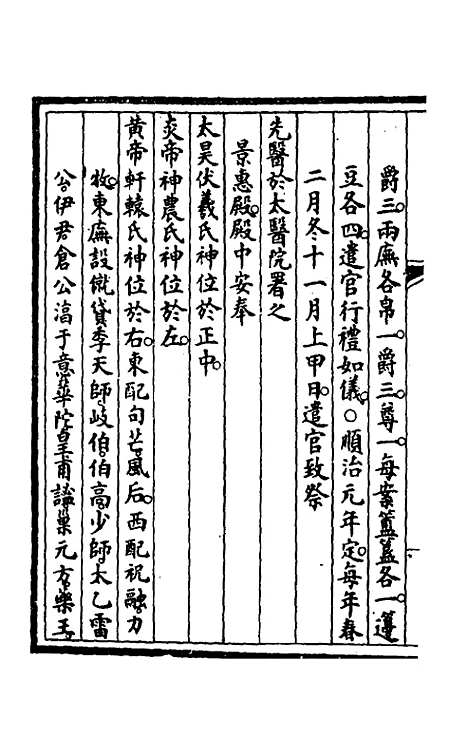 爵三兩廡各帛一爵三尊一每案簠簋各一籩
豆各四遣官行禮如儀○順治元年定每年春
二月冬十一月上甲日遣官致祭
先醫於太醫院署之
景惠殿殿中安奉
太昊伏羲氏神位於正中
炎帝神農氏神位於左
黃帝軒轅氏神位於右東配句芒風后西配祝融力
牧東廡設僦貸季天師岐伯伯高少師太乙雷
公伊尹倉公淳于意華陀皇甫謐巢元方藥王